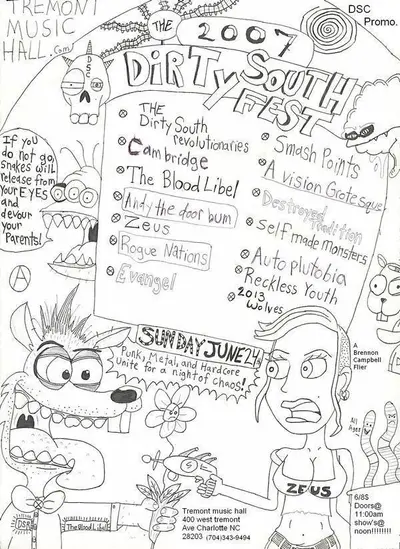 TREMONT
MUSIC
HALL.com
DSC
Promo.
THE
2007
DiRTy SOUTH
FEST
DSC
THE
Dirty South
revolutionaries
Cambridge
The Blood Libel
Andy the door bum
Zeus
Rogue Nations
Evangel
Smash Points
A vision Grotesque
Destroyed Tradition
Self made monsters
Auto plutobia
Reckless Youth
2013
Wolves
If you
do not go,
snakes will
release from
your EYES
and
devour
your
Parents!
A
SUNDAY JUNE 24th
Punk, Metal, and Hardcore
unite for a night of chaos!
A
Brennon
Campbell
Flier
All
Ages
ZEUS
DSR
The Blood Libel
Tremont music hall
400 west tremont
Ave Charlotte NC
28203 (704)343-9494
6/8$
Doors@
11:00am
show's@
noon!!!!!!!!